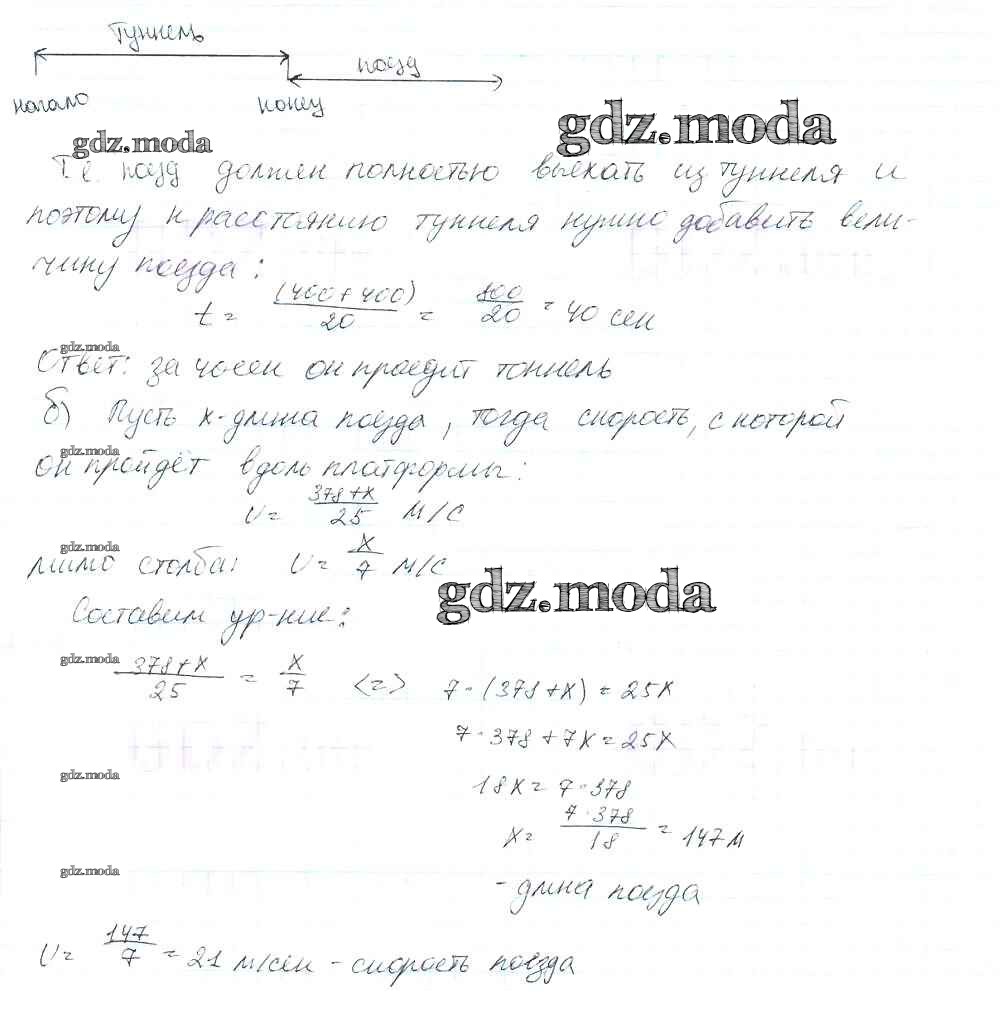 туннель
поезд
начало конец
gdz.moda
gdz.moda
Т.е. поезд должен полностью выехать из туннеля и
поэтому к расстоянию туннеля нужно добавить вели-
чину поезда:
t = (400+400)/20 = 800/20 = 40 сек
gdz.moda
Ответ: за 40 сек он проедит тоннель
б) Пусть x-длина поезда, тогда скорость, с которой
gdz.moda
он пройдёт вдоль платформы:
V = (378+x)/25 м/с
gdz.moda
мимо столба: V = x/7 м/с
gdz.moda
Составим ур-ние:
gdz.moda
(378+x)/25 = x/7 <=> 7·(378+x) = 25x
7·378+7x=25x
gdz.moda
18x = 7·378
x = (7·378)/18 = 147 м
gdz.moda
- длина поезда
V = 147/7 = 21 м/сек - скорость поезда